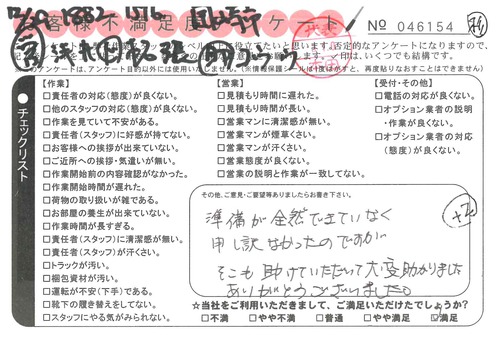 お客様不満足度アンケート
No 046154
チェックリスト
【作業】
□責任者の対応(態度)が良くない。
□他のスタッフの対応(態度)が良くない。
□作業を見ていて不安がある。
□責任者(スタッフ)に好感が持てない。
□お客様への挨拶が出来ていない。
□ご近所への挨拶・気遣いが無い。
□作業開始前の内容確認がなかった。
□作業開始時間が遅れた。
□荷物の取り扱いが雑である。
□お部屋の養生が出来ていない。
□作業時間が長すぎる。
□責任者(スタッフ)に清潔感が無い。
□責任者(スタッフ)が汗くさい。
□トラックが汚い。
□梱包資材が汚い。
□運転が不安(下手)である。
□靴下の履き替えをしてない。
□スタッフにやる気がみられない。
【営業】
□見積もり時間に遅れた。
□見積もりに時間が長い。
□営業マンに清潔感が無い。
□営業マンが煙草くさい。
□営業マンが汗くさい。
□営業態度が良くない。
□営業の説明と作業が一致してない。
【受付・その他】
□電話の対応が良くない。
□オプション業者の説明・作業が良くない。
□オプション業者の対応(態度)が良くない。
その他、ご意見・ご要望等ありましたらお書き下さい。
準備が全然できていなく
申し訳なかったのですが
そこも助けていただいて大変助かりました
ありがとうございました。
☆当社をご利用いただきまして、ご満足いただけたでしょうか?
□不満 □やや不満 □普通 □やや満足 ☑満足